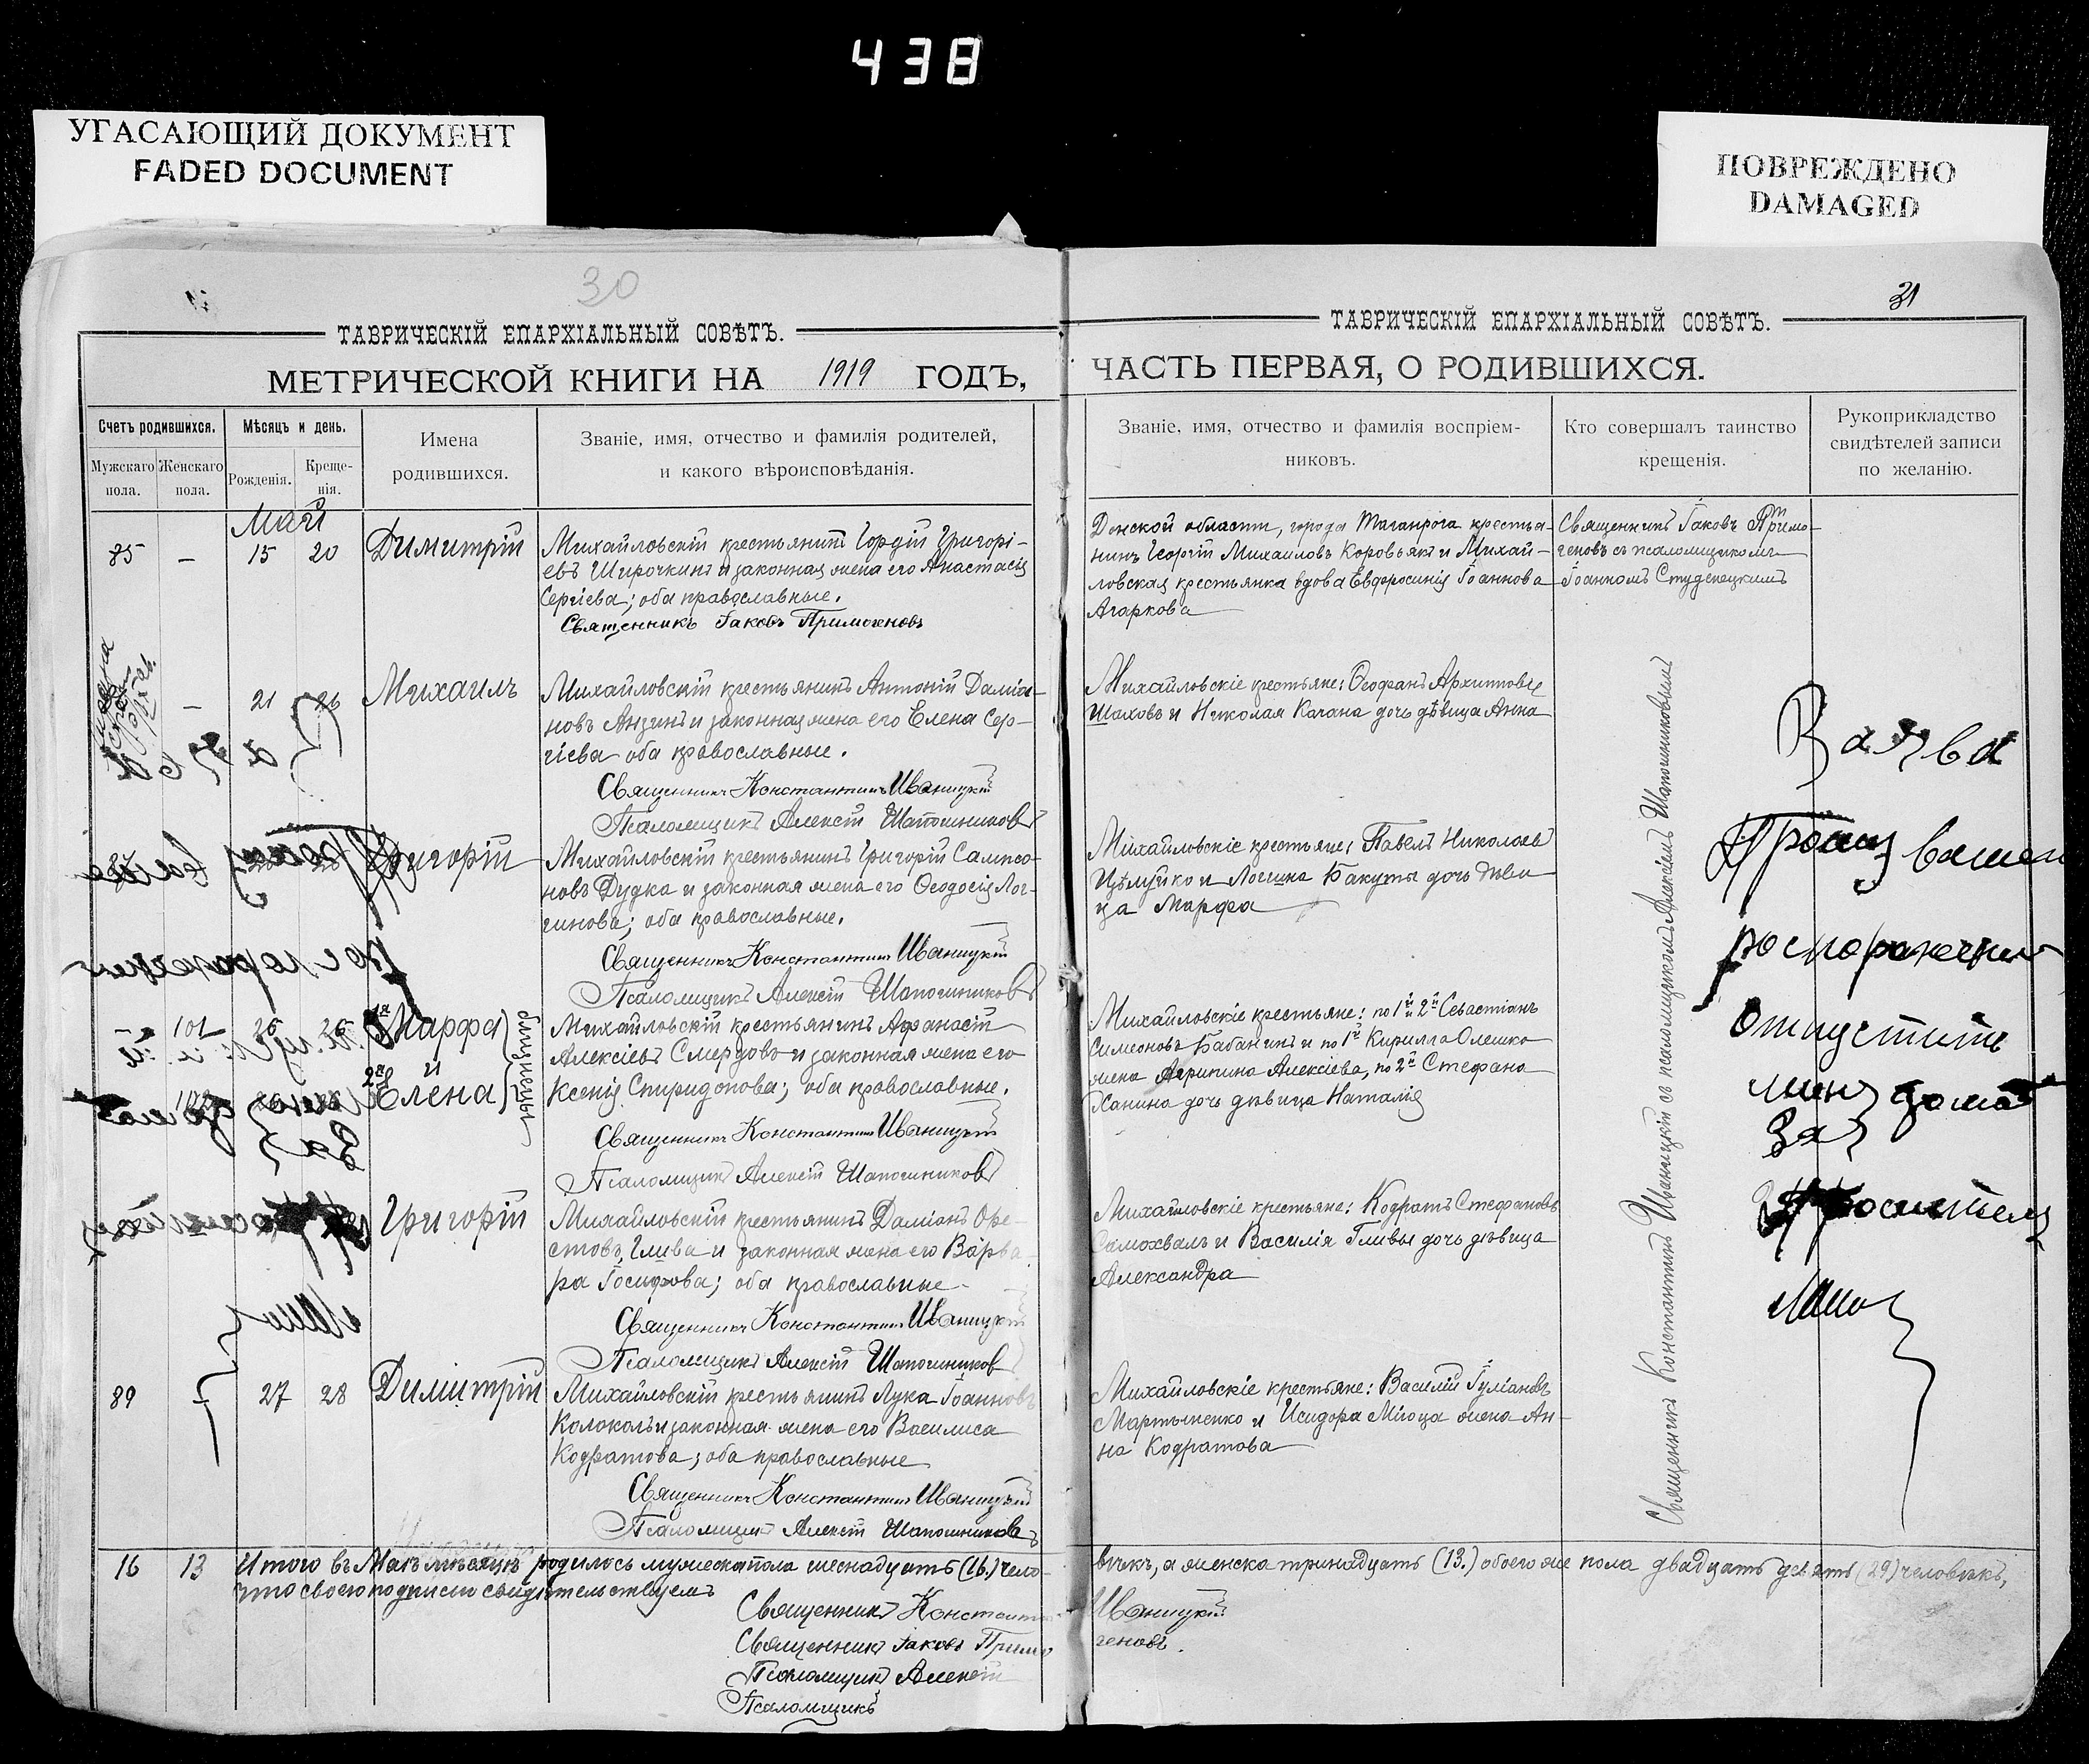 438
УГАСАЮЩИЙ ДОКУМЕНТ
FADED DOCUMENT
ПОВРЕЖДЕНО
DAMAGED
30
31
ТАВРИЧЕСКІЙ ЕПАРХІАЛЬНЫЙ СОВѢТЪ.
МЕТРИЧЕСКОЙ КНИГИ НА 1919 ГОДЪ,
Счетъ родившихся.
Мужскаго пола.
Женскаго пола.
Мѣсяцъ и день.
Рожденія.
Креще-
нія.
Имена
родившихся.
Званіе, имя, отчество и фамилія родителей,
и какого вѣроисповѣданія.
Май
85 — 15 20 Димитрій
Михайловскій крестьянинъ Гордій Григорі-
евъ Широчкинъ и законная жена его Анастасія
Сергіева; оба православные.
Священникъ Іаковъ Примогеновъ
— 21 26 Михаилъ
Михайловскій крестьянинъ Антоній Даміа-
новъ Анзинъ и законная жена его Елена Сер-
гіева оба православные.
Священникъ Константинъ Иваницкій
Псаломщикъ Алексій Шапошниковъ
Григорій
Михайловскій крестьянинъ Григорій Сампсо-
новъ Дудка и законная жена его Ѳеодосія Лог-
гинова; оба православные.
Священникъ Константинъ Иваницкій
Псаломщикъ Алексій Шапошниковъ
— 101 26 26 1я Марфа
и
2я Елена
близнецы
Михайловскій крестьянинъ Аѳанасій
Алексіевъ Смердовъ и законная жена его
Ксенія Спиридонова; оба православные.
Священникъ Константинъ Иваницкій
Псаломщикъ Алексій Шапошниковъ
Григорій
Михайловскій крестьянинъ Даміанъ Оре-
стовъ Глива и законная жена его Варва-
ра Іосифова; оба православные
Священникъ Константинъ Иваницкій
Псаломщикъ Алексій Шапошниковъ
89 — 27 28 Димитрій
Михайловскій крестьянинъ Лука Іоанновъ
Колоколъ и законная жена его Василиса
Кодратова; оба православные
Священникъ Константинъ Иваницкій
Псаломщикъ Алексій Шапошниковъ
16 13 Итого въ Маѣ мѣсяцѣ родилось мужеска пола шеснадцать (16.) чело-
что своею подписью свидѣтельствуемъ
Священникъ Константинъ
Священникъ Іаковъ Примо
Псаломщикъ Алексій
Псаломщикъ
ТАВРИЧЕСКІЙ ЕПАРХІАЛЬНЫЙ СОВѢТЪ.
ЧАСТЬ ПЕРВАЯ, О РОДИВШИХСЯ.
Званіе, имя, отчество и фамилія воспріем-
никовъ.
Кто совершалъ таинство
крещенія.
Рукоприкладство
свидѣтелей записи
по желанію.
Донской области, города Таганрога крестья-
нинъ Георгій Михаиловъ Коровьякъ и Михай-
ловская крестьянка вдова Евфросинія Іоаннова
Агаркова
Священникъ Іаковъ Примо-
геновъ съ псаломщикомъ
Іоанномъ Студенецкимъ
Михайловскіе крестьяне: Ѳеофанъ Архиповъ
Шаховъ и Николая Качана дочь дѣвица Анна
Михайловскіе крестьяне: Павелъ Николаевъ
Цѣлуйко и Логгина Бакуты дочь дѣви-
ца Марфа
Михайловскіе крестьяне: по 1й и 2й Севастіанъ
Симеоновъ Бабанинъ и по 1й Кирилла Олешко
жена Агрипина Алексіева, по 2й Стефана
Ханина дочь дѣвица Наталія
Михайловскіе крестьяне: Кодратъ Стефановъ
Самохвалъ и Василія Гливы дочь дѣвица
Александра
Михайловскіе крестьяне: Василій Іуліановъ
Мартыненко и Исидора Мигоца жена Ан-
на Кодратова
Священникъ Константинъ Иваницкій съ псаломщикомъ Алексіемъ Шапошниковымъ
Прошу вашем
роспоражения
Отпустить
мену дома
За
просителя
вѣкъ, а женска тринадцать (13.) обоего же пола двадцать девять (29) человѣкъ,
Иваницкій
геновъ.